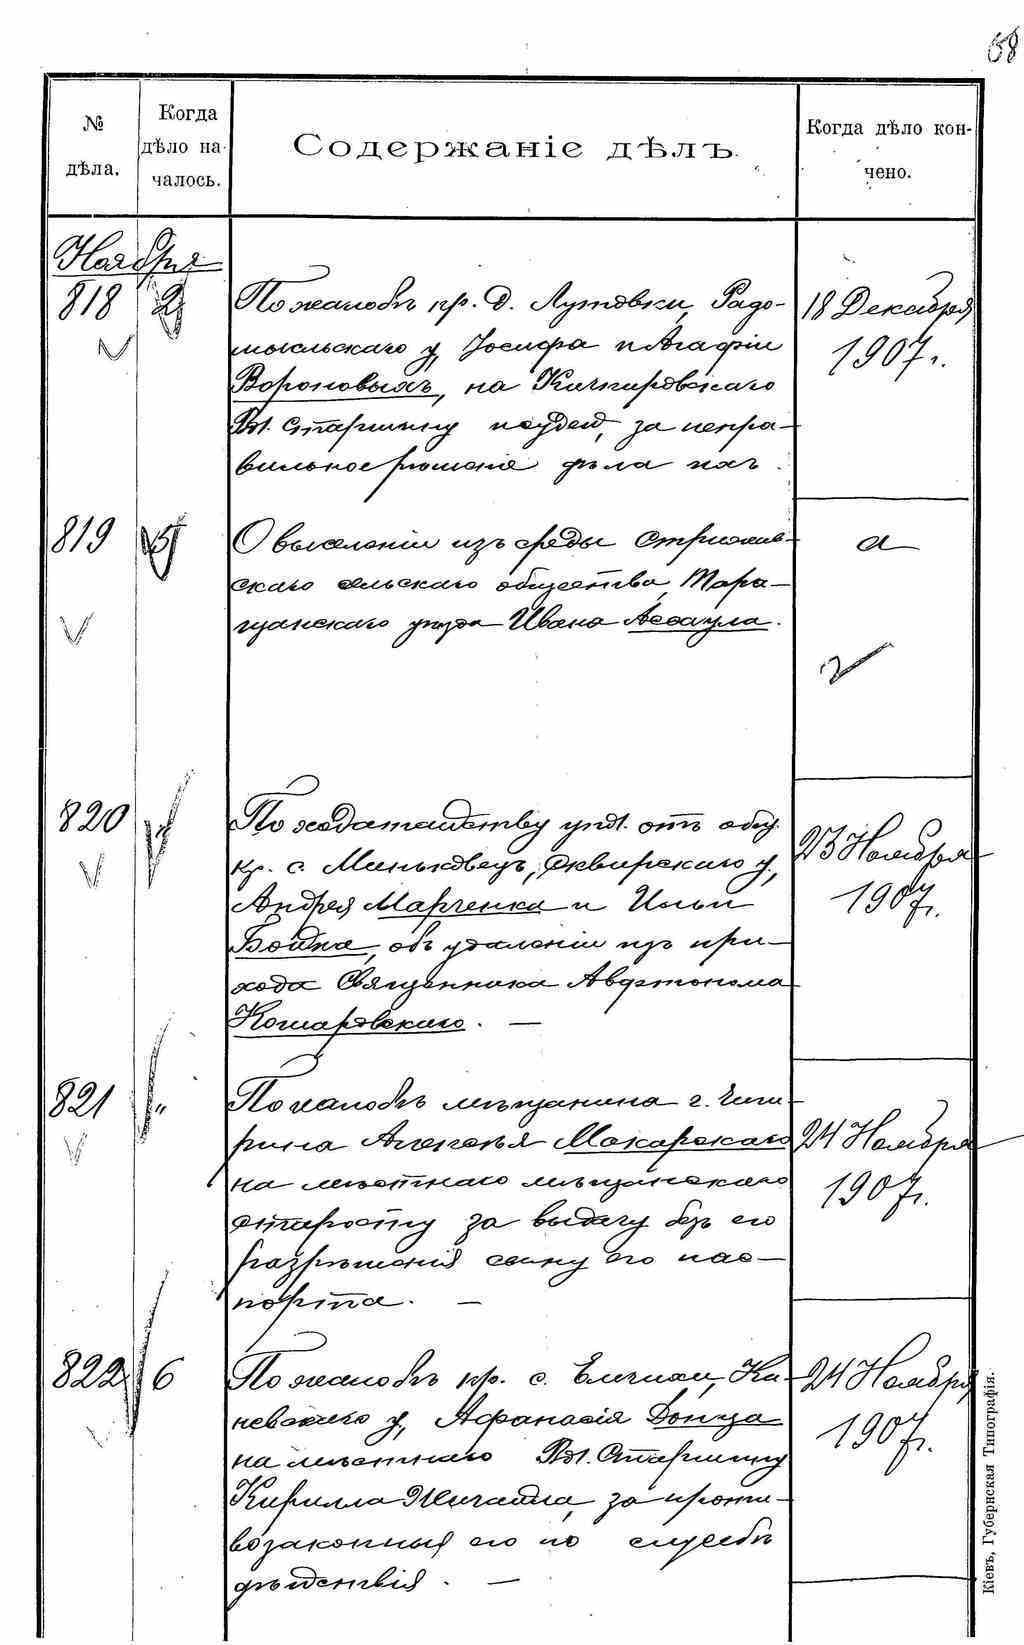 58
№ дѣла.
Когда дѣло на-
чалось.
Содержаніе дѣлъ.
Когда дѣло кон-
чено.
Ноября
818 2
По жалобѣ кр. д. Лутовки, Радо-
мысльскаго у, Іосифа и Агафіи
Вороновыхъ, на Кичкировскаго
Вол. Старшину и судей, за непра-
вильное рѣшеніе дѣла ихъ.
18 Декабря
1907 г.
819 5
О выселеніи изъ среды Стрижав-
скаго сельскаго общества, Тара-
щанскаго уѣзда Ивана Асаула.
а
820 "
По ходатайству упол. отъ общ.
кр. с. Миньковецъ, Сквирскаго у.,
Андрея Марченка и Ильи
Бойка, объ удаленіи изъ при-
хода Священника Автонома
Комаровскаго. —
23 Ноября
1907 г.
821 "
По жалобѣ мѣщанина г. Чиги-
рина Алексѣя Макарскаго
на мѣстнаго мѣщанскаго
старосту за выдачу безъ его
разрѣшенія сыну его пас-
порта. —
24 Ноября
1907 г.
822 6
По жалобѣ кр. с. Емчихи, Ка-
невскаго у, Афанасія Донца
на мѣстнаго Вол. Старшину
Кирилла за проти-
возаконныя его по службѣ
дѣйствія. —
24 Ноября
1907 г.
Кіевъ, Губернская Типографія.